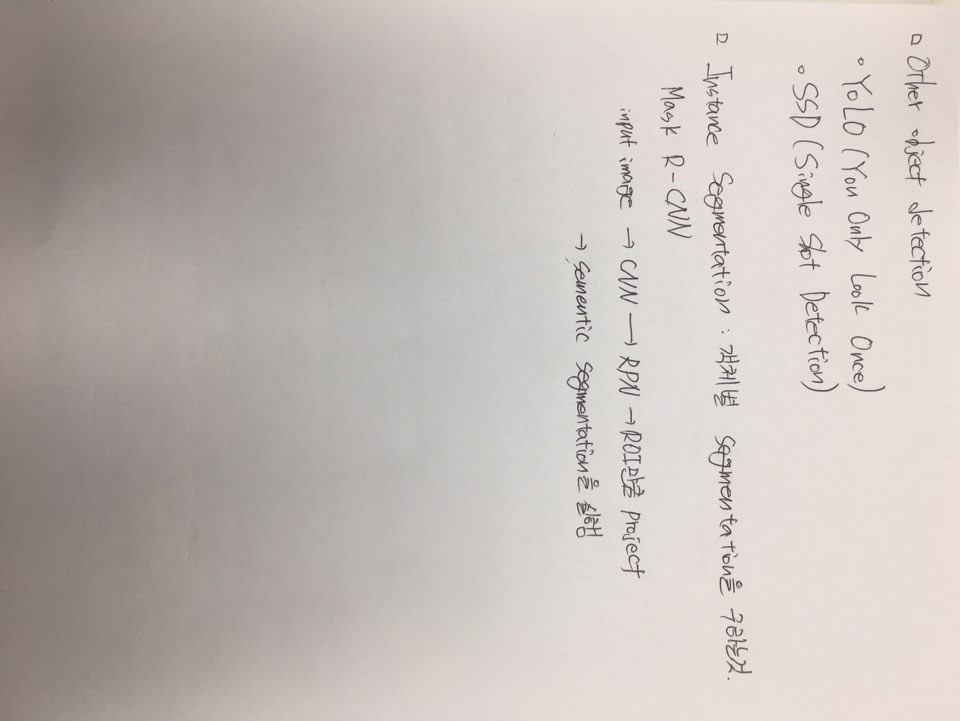 □ Other object detection
◦ YOLO (You Only Look Once)
◦ SSD (Single Shot Detection)
□ Instance Segmentation : 객체별 segmentation을 구하는것.
Mask R-CNN
input image → CNN → RPN → ROI만큼 project
→ sementic segmentation을 실행